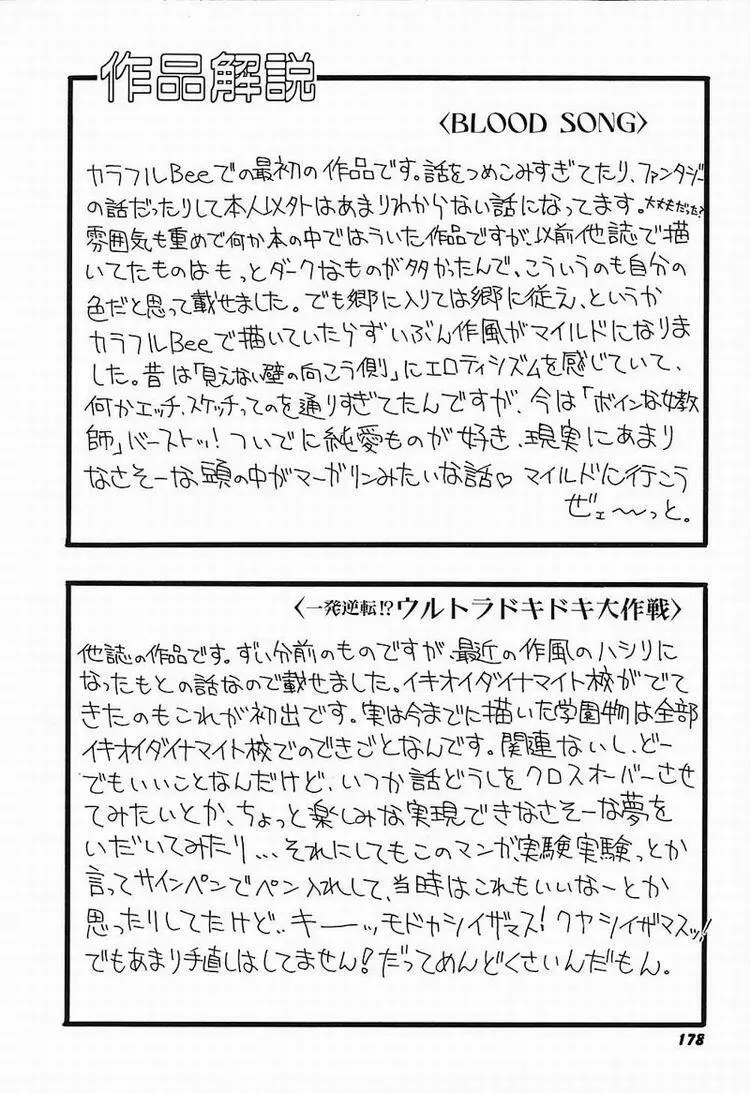 作品解説
〈BLOOD SONG〉
カラフルBeeでの最初の作品です。話をつめこみすぎてたり、ファンタジー
の話だったりして本人以外はあまりわからない話になってます。大丈夫だった?
雰囲気も重めで何か本の中ではういた作品ですが、以前他誌で描
いてたものはもっとダークなものが多かったんで、こういうのも自分の
色だと思って載せました。でも郷に入りては郷に従え、というか
カラフルBeeで描いていたらずいぶん作風がマイルドになりま
した。昔は「見えない壁の向こう側」にエロティシズムを感じていて、
何かエッチ、スケッチってのを通りすぎてたんですが、今は「ボインな女教
師」バーストッ!ついでに純愛ものが好き、現実にあまり
なさそーな、頭の中がマーガリンみたいな話♡ マイルドに行こう
ぜェ〜〜っと。
〈一発逆転!?ウルトラドキドキ大作戦〉
他誌の作品です。ずい分前のものですが、最近の作風のハシリに
なったもとの話なので載せました。イキオイダイナマイト校がでて
きたのもこれが初出です。実は今までに描いた学園物は全部
イキオイダイナマイト校でのできごとなんです。関連ないし、どー
でもいいことなんだけど、いつか話どうしをクロスオーバーさせ
てみたいとか、ちょっと楽しみな実現できなさそーな夢を
いだいてみたり…それにしてもこのマンガ、実験実験っとか
言ってサインペンでペン入れして、当時はこれもいいなーとか
思ったりしてたけど..キーーッモドカシイザマス!クヤシイザマスッ!!
でもあまり手直しはしてません!だってめんどくさいんだもん。
178